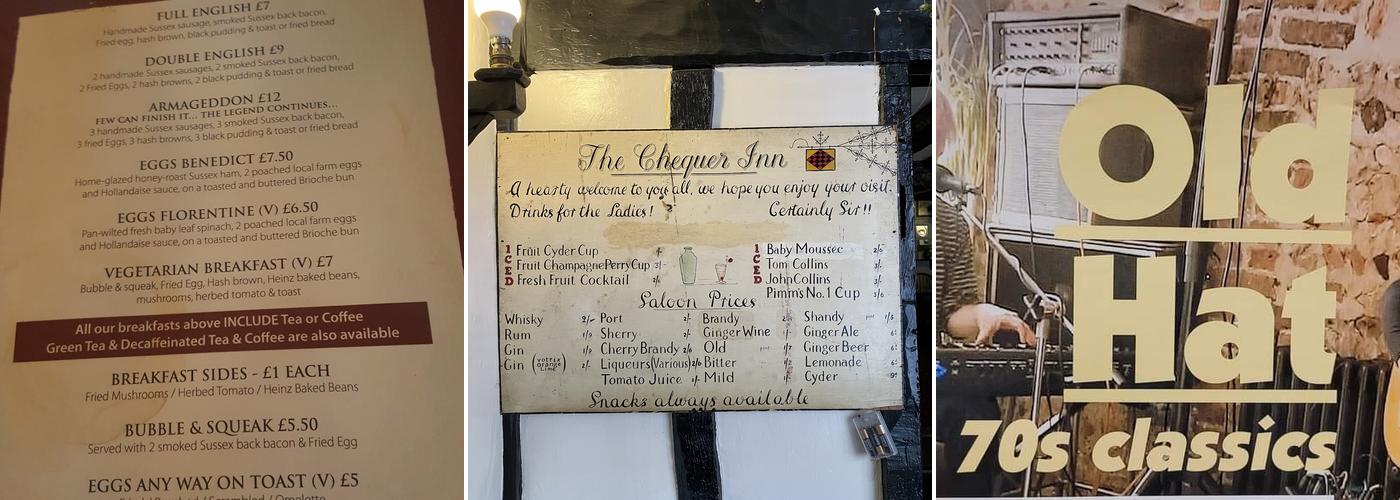 FULL ENGLISH £7
Handmade Sussex sausage, smoked Sussex back bacon,
Fried egg, hash brown, black pudding & toast or fried bread
DOUBLE ENGLISH £9
2 handmade Sussex sausages, 2 smoked Sussex back bacon,
2 Fried Eggs, 2 hash browns, 2 black pudding & toast or fried bread
ARMAGEDDON £12
FEW CAN FINISH IT... THE LEGEND CONTINUES...
3 handmade Sussex sausages, 3 smoked Sussex back bacon,
3 fried Eggs, 3 hash browns, 3 black pudding & toast or fried bread
EGGS BENEDICT £7.50
Home-glazed honey-roast Sussex ham, 2 poached local farm eggs
and Hollandaise sauce, on a toasted and buttered Brioche bun
EGGS FLORENTINE (V) £6.50
Pan-wilted fresh baby leaf spinach, 2 poached local farm eggs
and Hollandaise sauce, on a toasted and buttered Brioche bun
VEGETARIAN BREAKFAST (V) £7
Bubble & squeak, Fried Egg, Hash brown, Heinz baked beans,
mushrooms, herbed tomato & toast
All our breakfasts above INCLUDE Tea or Coffee
Green Tea & Decaffeinated Tea & Coffee are also available
BREAKFAST SIDES - £1 EACH
Fried Mushrooms / Herbed Tomato / Heinz Baked Beans
BUBBLE & SQUEAK £5.50
Served with 2 smoked Sussex back bacon & Fried Egg
EGGS ANY WAY ON TOAST (V) £5
The Chequer Inn
A hearty welcome to you all, we hope you enjoy your visit.
Drinks for the Ladies! Certainly Sir!!
ICED
Fruit Cyder Cup
Fruit Champagne Perry Cup 3/-
Fresh Fruit Cocktail
ICED
Baby Moussec 2/6
Tom Collins 3/-
John Collins 3/-
Pimm's No. 1 Cup 3/6
Saloon Prices
Whisky 2/- Port 2/- Brandy Shandy 1/3
Rum 1/9 Sherry 2/- Ginger Wine 1/- Ginger Ale
Gin 1/9 Cherry Brandy 2/6 Old Ginger Beer
Gin (votrix orange lime) 2/- Liqueurs (Various) 2/6 Bitter Lemonade
Tomato Juice 1/- Mild Cyder
Snacks always available
Old
Hat
70s classics